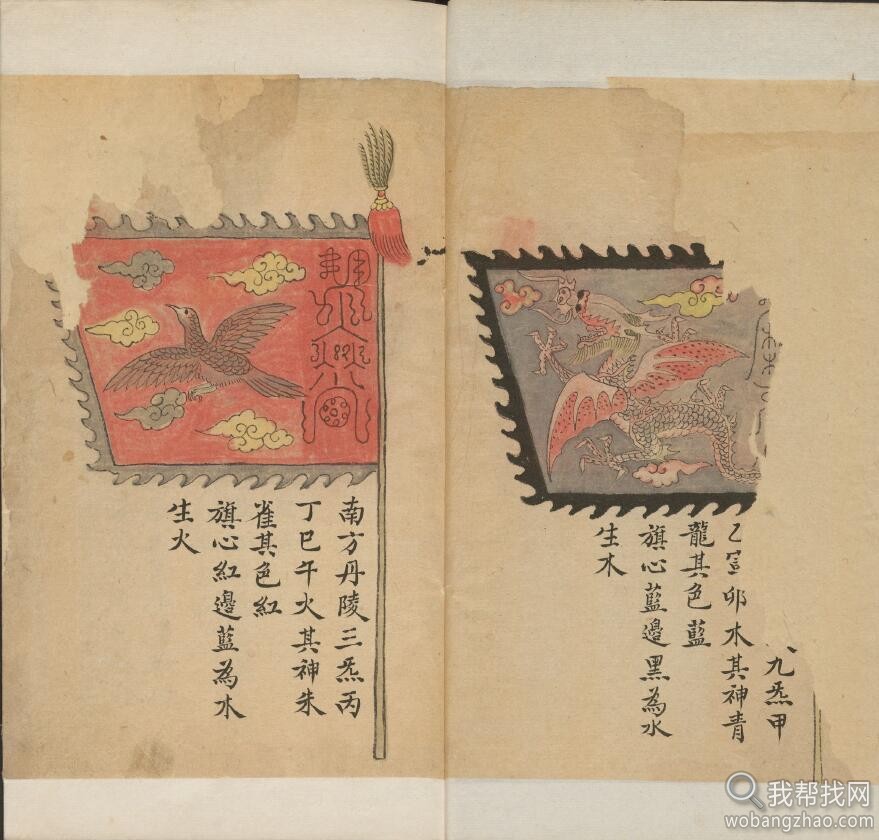 九炁甲
乙寅卯木其神青
龍其色藍
旗心藍邊黑為水
生木
南方丹陵三炁丙
丁巳午火其神朱
雀其色紅
旗心紅邊藍為木
生火
我帮找网
wobangzhao.com